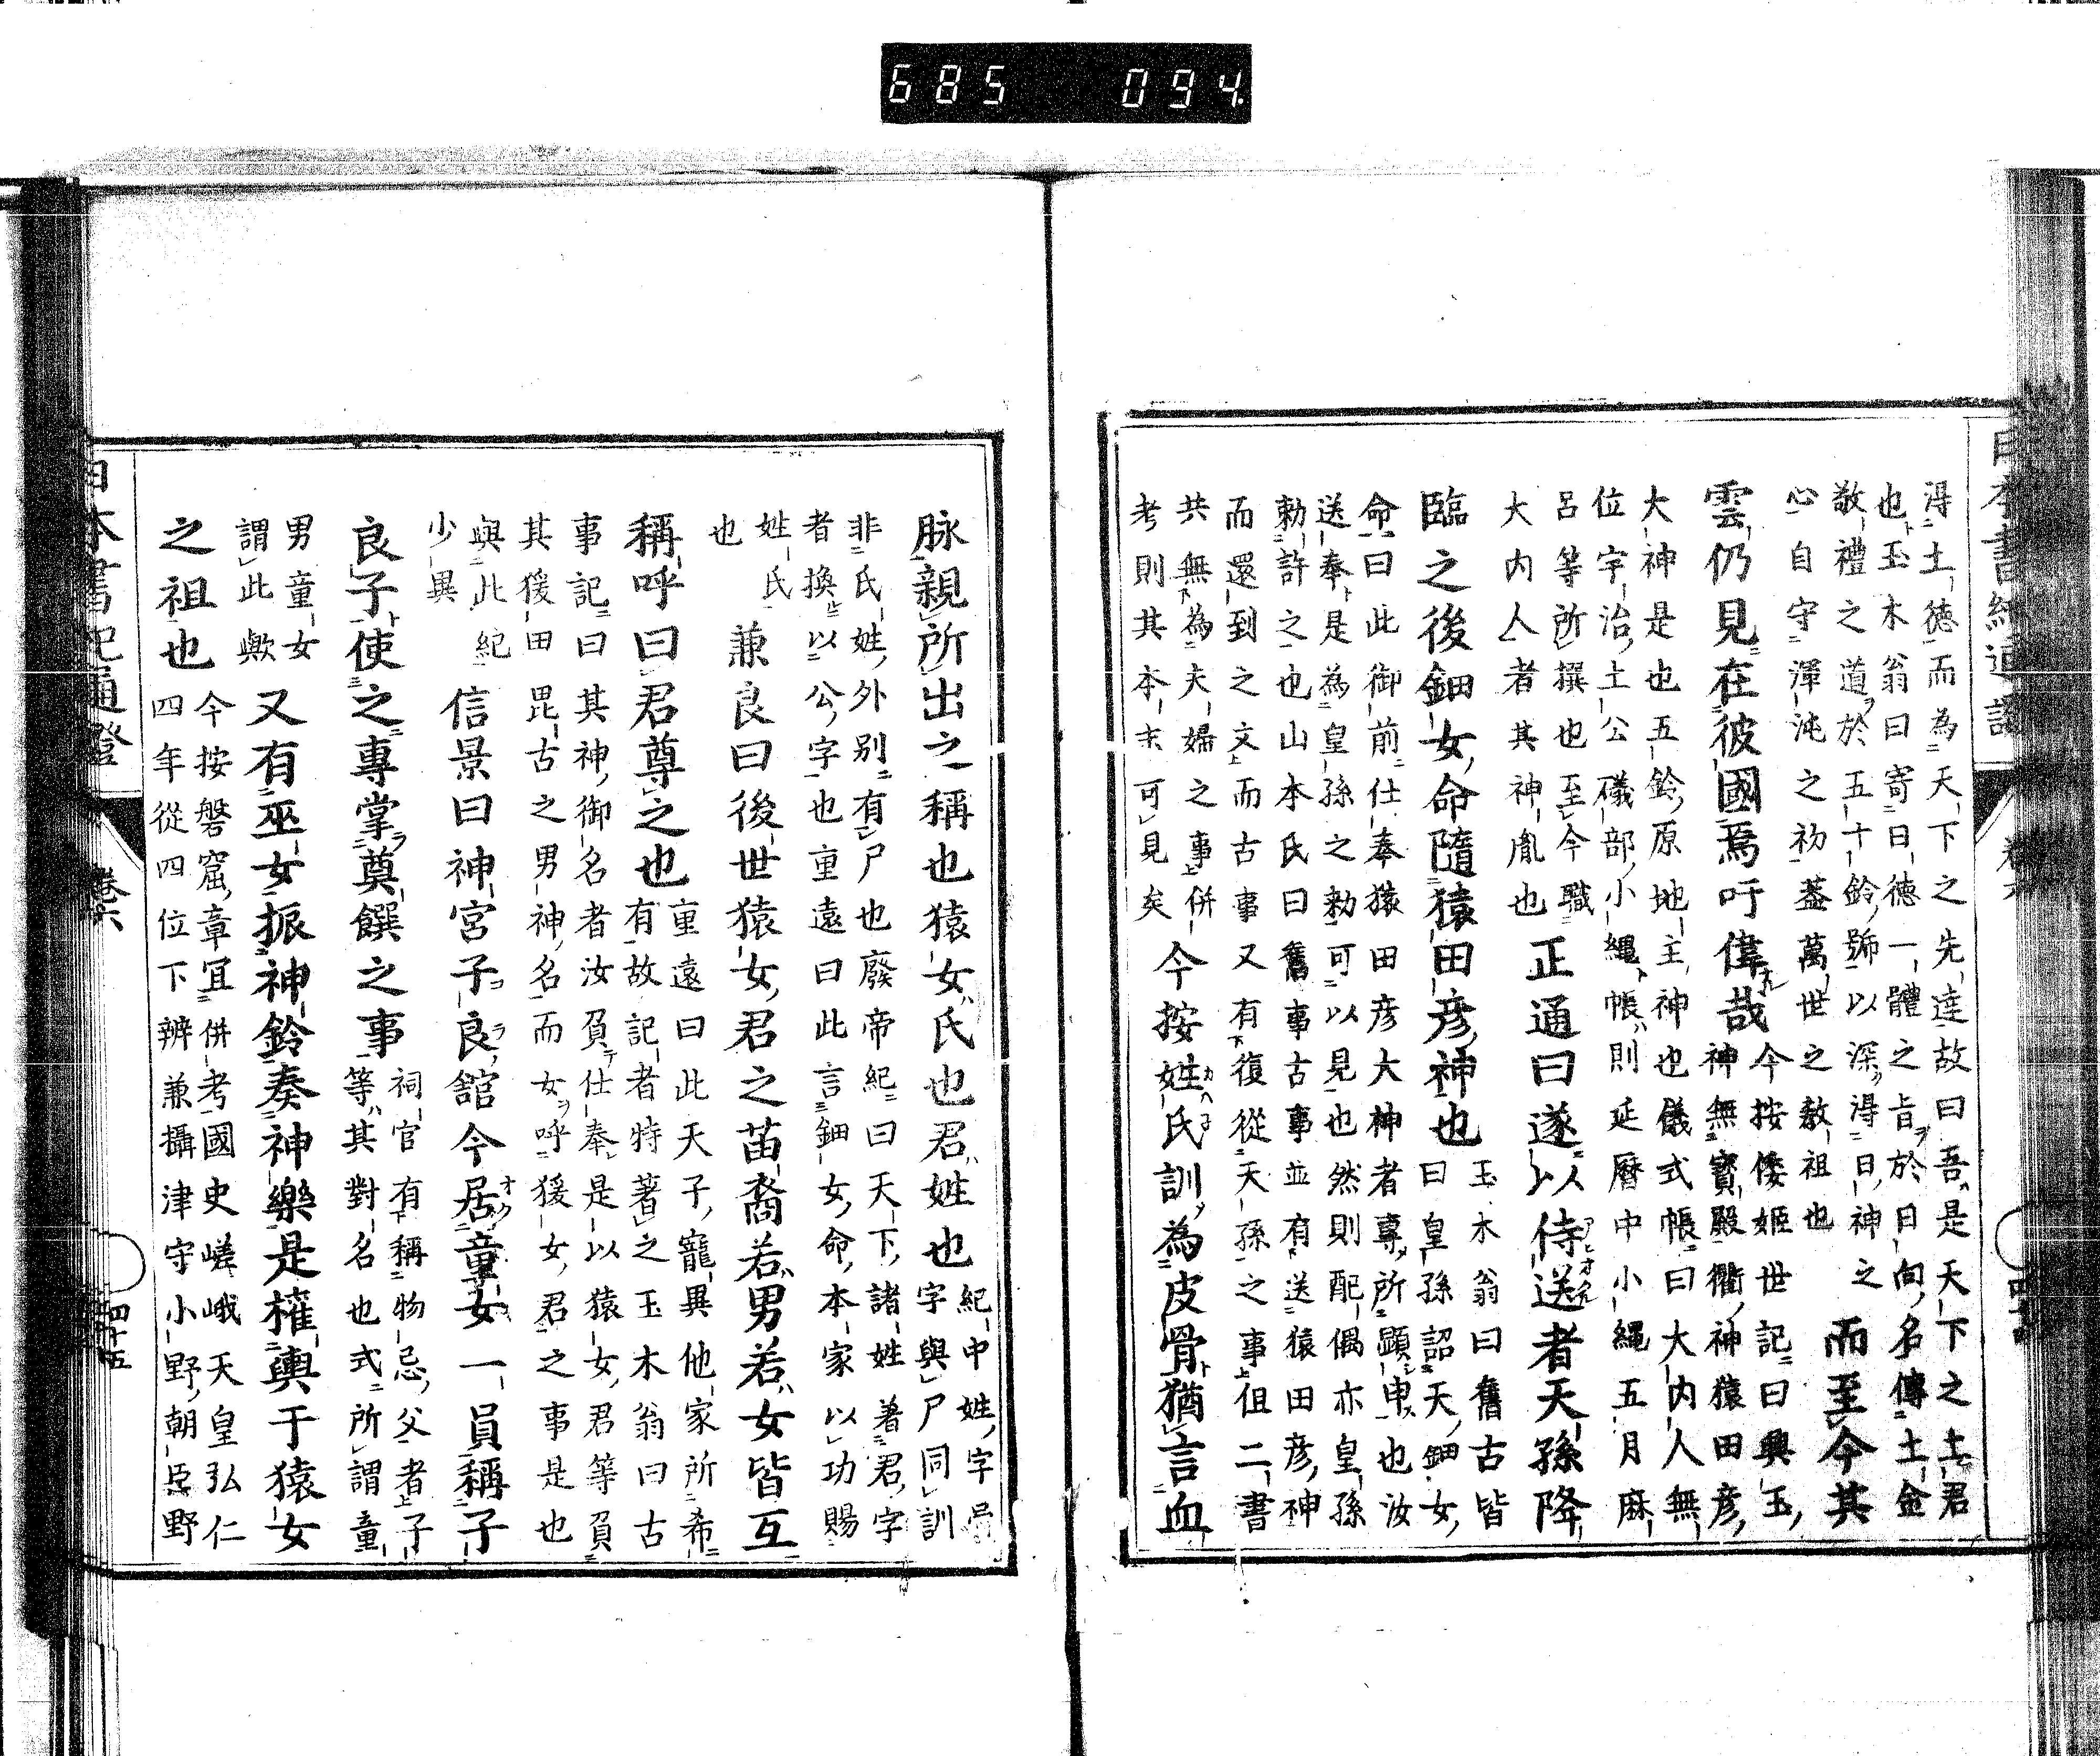 685 094
得土德而為天下之先達故曰吾是天下之土君
也玉木翁曰寄日德一體之旨於日向名傳土金
敬禮之道於五十鈴號以深得日神之
心自守渾沌之初蓋萬世之教祖也
而至今其
雲仍見在彼國焉吁偉哉
今按倭姬世記曰興玉
神無寶殿衢神猿田彥
大神是也五鈴原地主神也儀式帳曰大內人無
位宇治土公礒部小繩帳則延曆中小繩五月麻
呂等所撰也至今職
大內人者其神胤也
正通曰遂以侍送者天孫降
臨之後鈿女命隨猿田彥神也
玉木翁曰舊古皆
曰皇孫詔天鈿女
命曰此御前仕奉猿田彥大神者專所顯申也汝
送奉是為皇孫之勅可以見也然則配偶亦皇孫
勅許之也山本氏曰舊事古事並有送猿田彥神
而還到之文而古事又有復從天孫之事但二書
共無為夫婦之事併
考則其本末可見矣
今按姓氏訓為皮骨猶言血
日本書紀通證 卷六
脉親所出之稱也猿女氏也君姓也
紀中姓字
字與尸同訓
非氏姓外別有尸也廢帝紀曰天下諸姓著君字
者換以公字也重遠曰此言鈿女命本家以功賜
姓氏
也
兼良曰後世猿女君之苗裔若男若女皆互
稱呼曰君尊之也
重遠曰此天子寵異他家所希
有故記者特著之玉木翁曰古
事記曰其神御名者汝負仕奉是以猿女君等負
其猨田毘古之男神名而女呼猨女君之事是也
與此紀
少異
信景曰神宮子良舘今居童女一員稱子
良子使之專掌奠饌之事
祠官有稱物忌父者子
等其對名也式所謂童
男童女
謂此歟
又有巫女振神鈴奏神樂是權輿于猿女
之祖也
今按磐窟章宜併考國史嵯峨天皇弘仁
四年從四位下辨兼攝津守小野朝臣野
日本書紀通證 卷六 四十五